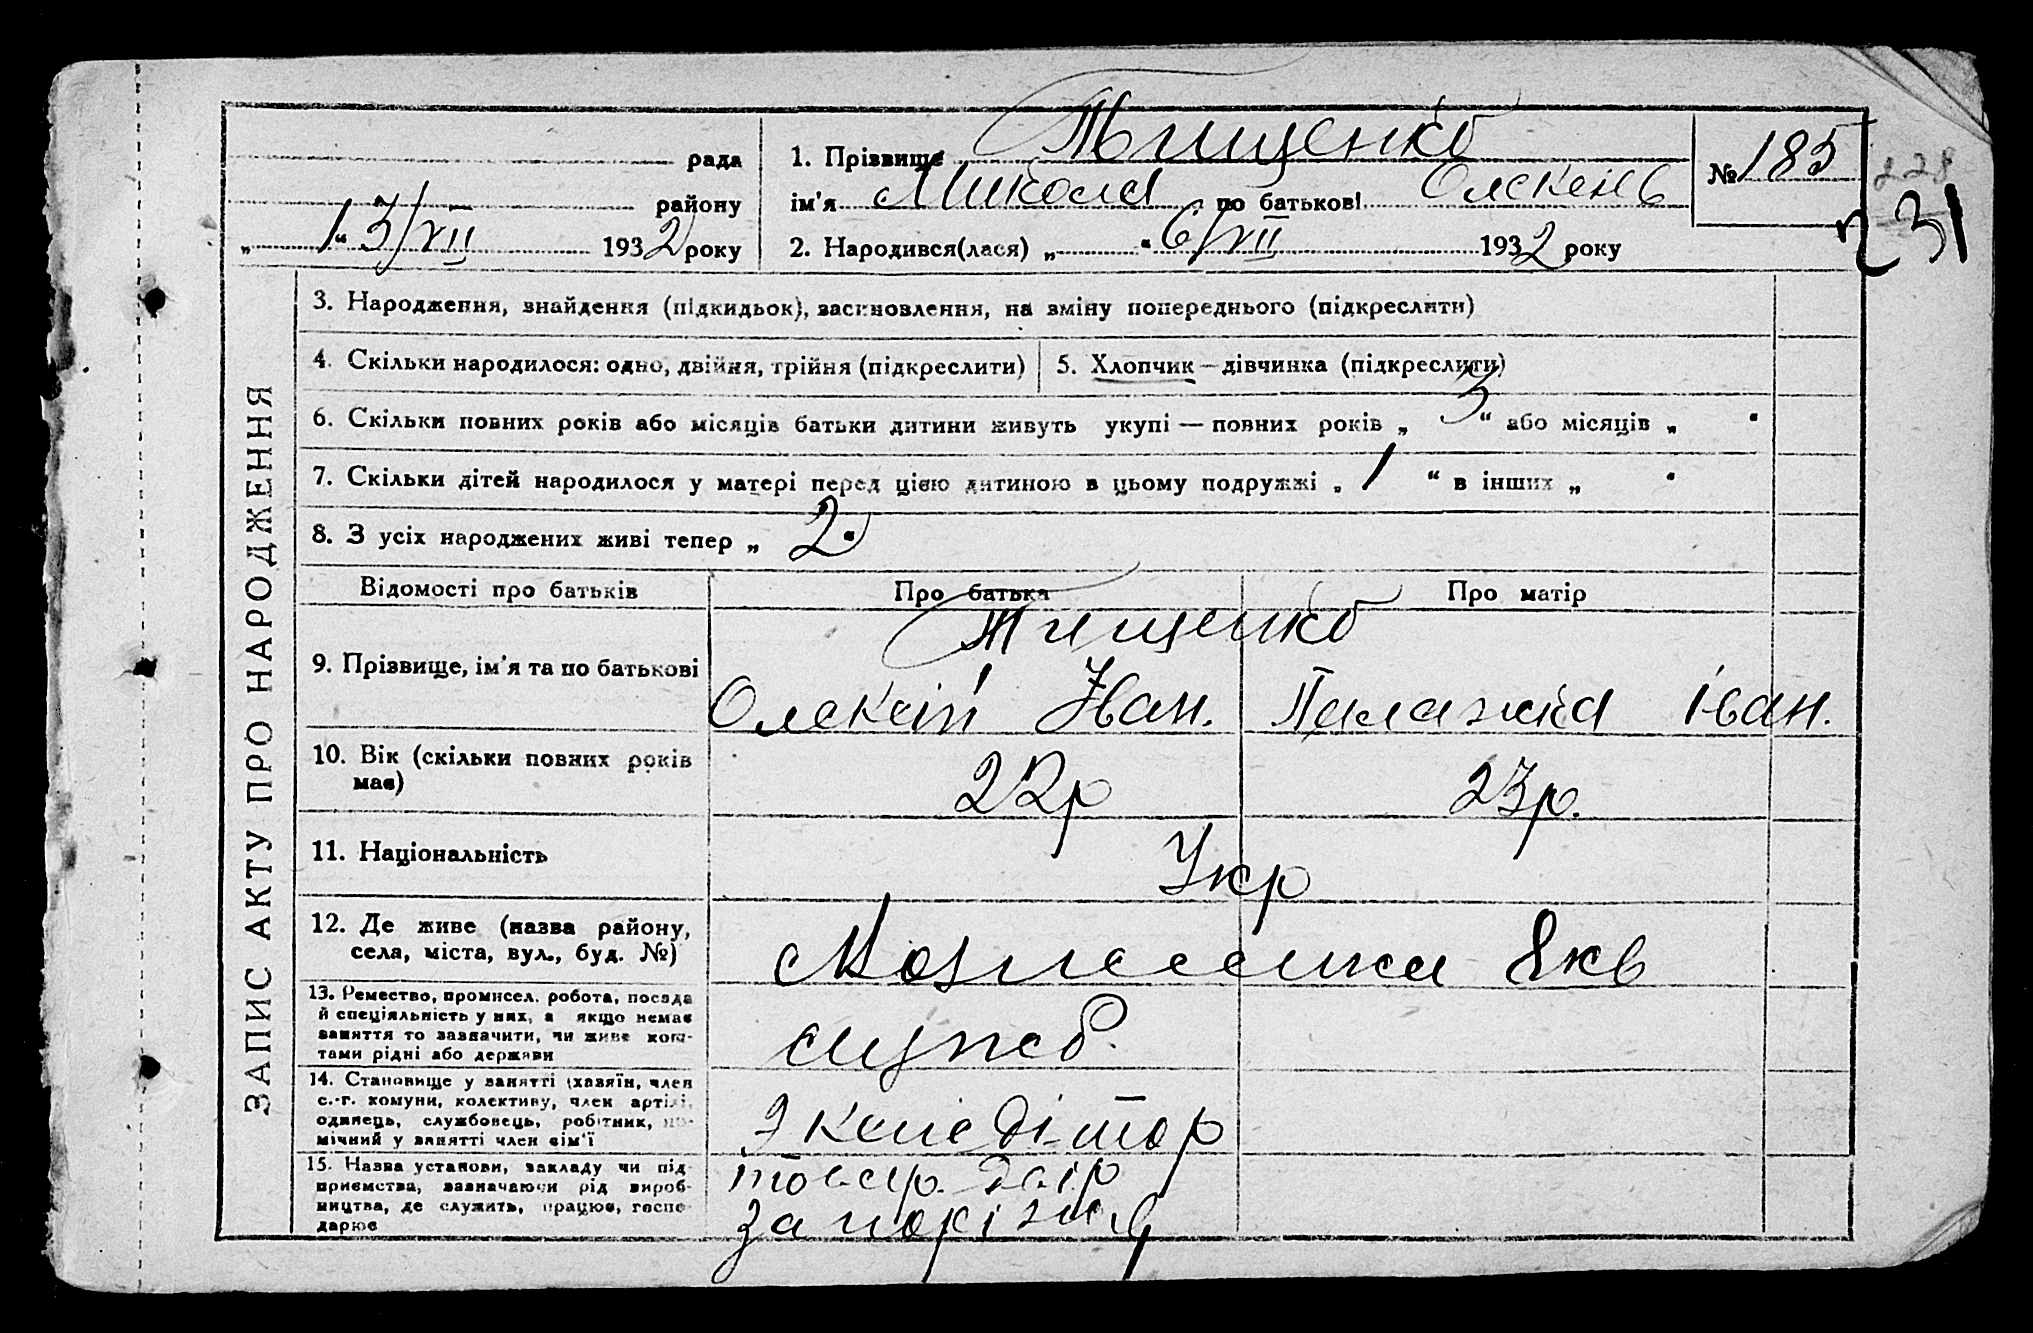 рада
району
„ 13/VII 1932 року
1. Прізвище Тищенко
ім'я Микола по батькові Олексієв
2. Народився(лася) „ “ 6/VII 1932 року
№ 185
228
231
ЗАПИС АКТУ ПРО НАРОДЖЕННЯ
3. Народження, знайдення (підкидьок), засиновлення, на зміну попереднього (підкреслити)
4. Скільки народилося: одно, двійня, трійня (підкреслити)
5. Хлопчик — дівчинка (підкреслити)
6. Скільки повних років або місяців батьки дитини живуть укупі — повних років „ 3 “ або місяців „ “
7. Скільки дітей народилося у матері перед цією дитиною в цьому подружжі „ 1 “ в інших „ “
8. З усіх народжених живі тепер „ 2 “
Відомості про батьків
Про батька
Про матір
9. Прізвище, ім'я та по батькові
Тищенко
Олексій Іван.
Палажка Іван.
10. Вік (скільки повних років
має)
22р
23р.
11. Національність
Укр
12. Де живе (назва району,
села, міста, вул., буд. №)
8 кв
13. Ремество, промисел. робота, посада
й спеціяльність у них, а якщо немає
заняття то зазначити, чи живе кош-
тами рідні або держави
служб.
14. Становище у занятті (хазяїн, член
с.-г. комуни, колективу, член артілі,
одинець, службовець, робітник, по-
мічний у занятті член сім'ї
Экспедітор
15. Назва установи, закладу чи під-
приємства, зазначаючи рід вироб-
ництва, де служить, працює, госпо-
дарює
товар.
Запоріжжя